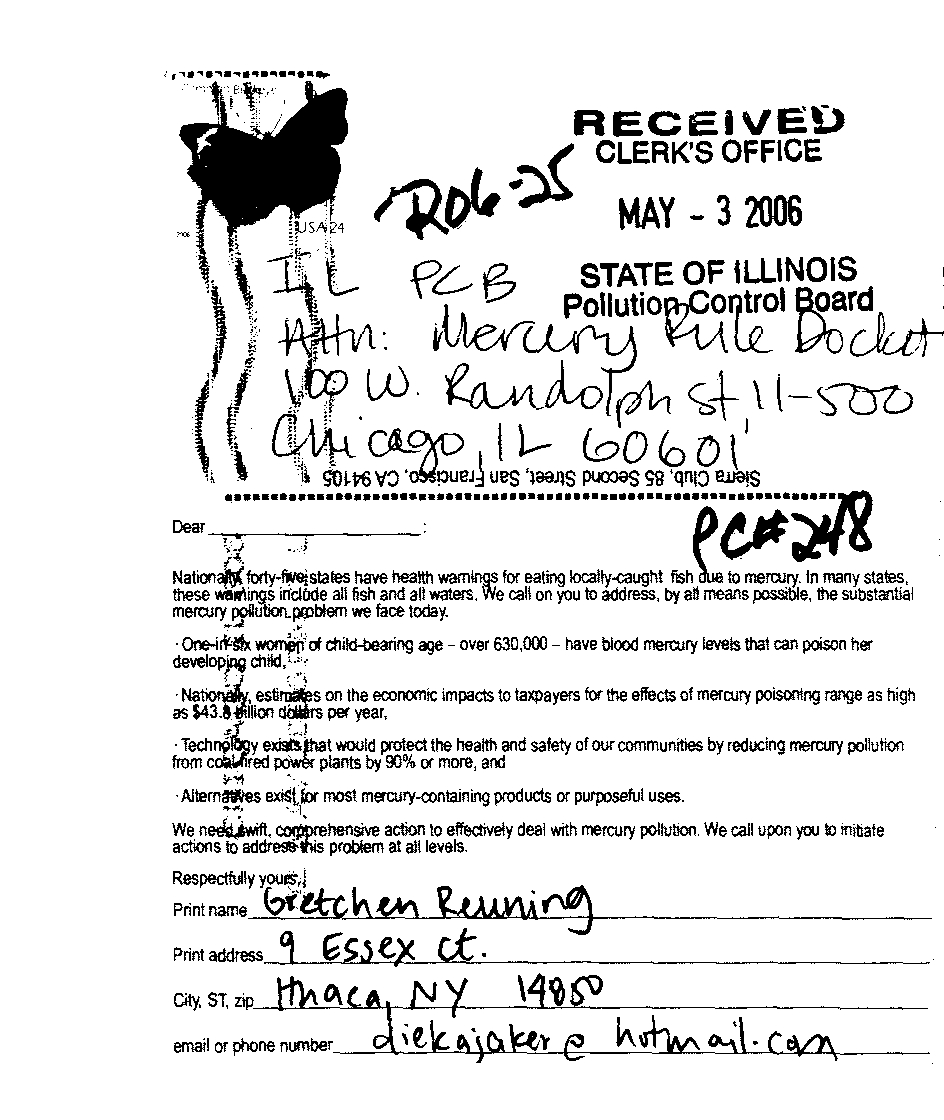 USA 24
RECEIVED
CLERK'S OFFICE
R06-25
MAY - 3 2006
STATE OF ILLINOIS
Pollution Control Board
IL PCB
Attn: Mercury Rule Docket
100 W. Randolph St, 11-500
Chicago, IL 60601
Sierra Club, 85 Second Street, San Francisco, CA 94105
PC#248
Dear :
Nationally, forty-five states have health warnings for eating locally-caught fish due to mercury. In many states,
these warnings include all fish and all waters. We call on you to address, by all means possible, the substantial
mercury pollution problem we face today.
· One-in-six women of child-bearing age – over 630,000 – have blood mercury levels that can poison her
developing child,
· Nationally, estimates on the economic impacts to taxpayers for the effects of mercury poisoning range as high
as $43.8 billion dollars per year,
· Technology exists that would protect the health and safety of our communities by reducing mercury pollution
from coal-fired power plants by 90% or more, and
· Alternatives exist for most mercury-containing products or purposeful uses.
We need swift, comprehensive action to effectively deal with mercury pollution. We call upon you to initiate
actions to address this problem at all levels.
Respectfully yours,
Print name Gretchen Reuning
Print address 9 Essex ct.
City, ST, zip Ithaca, NY 14850
email or phone number diekajaker@hotmail.com